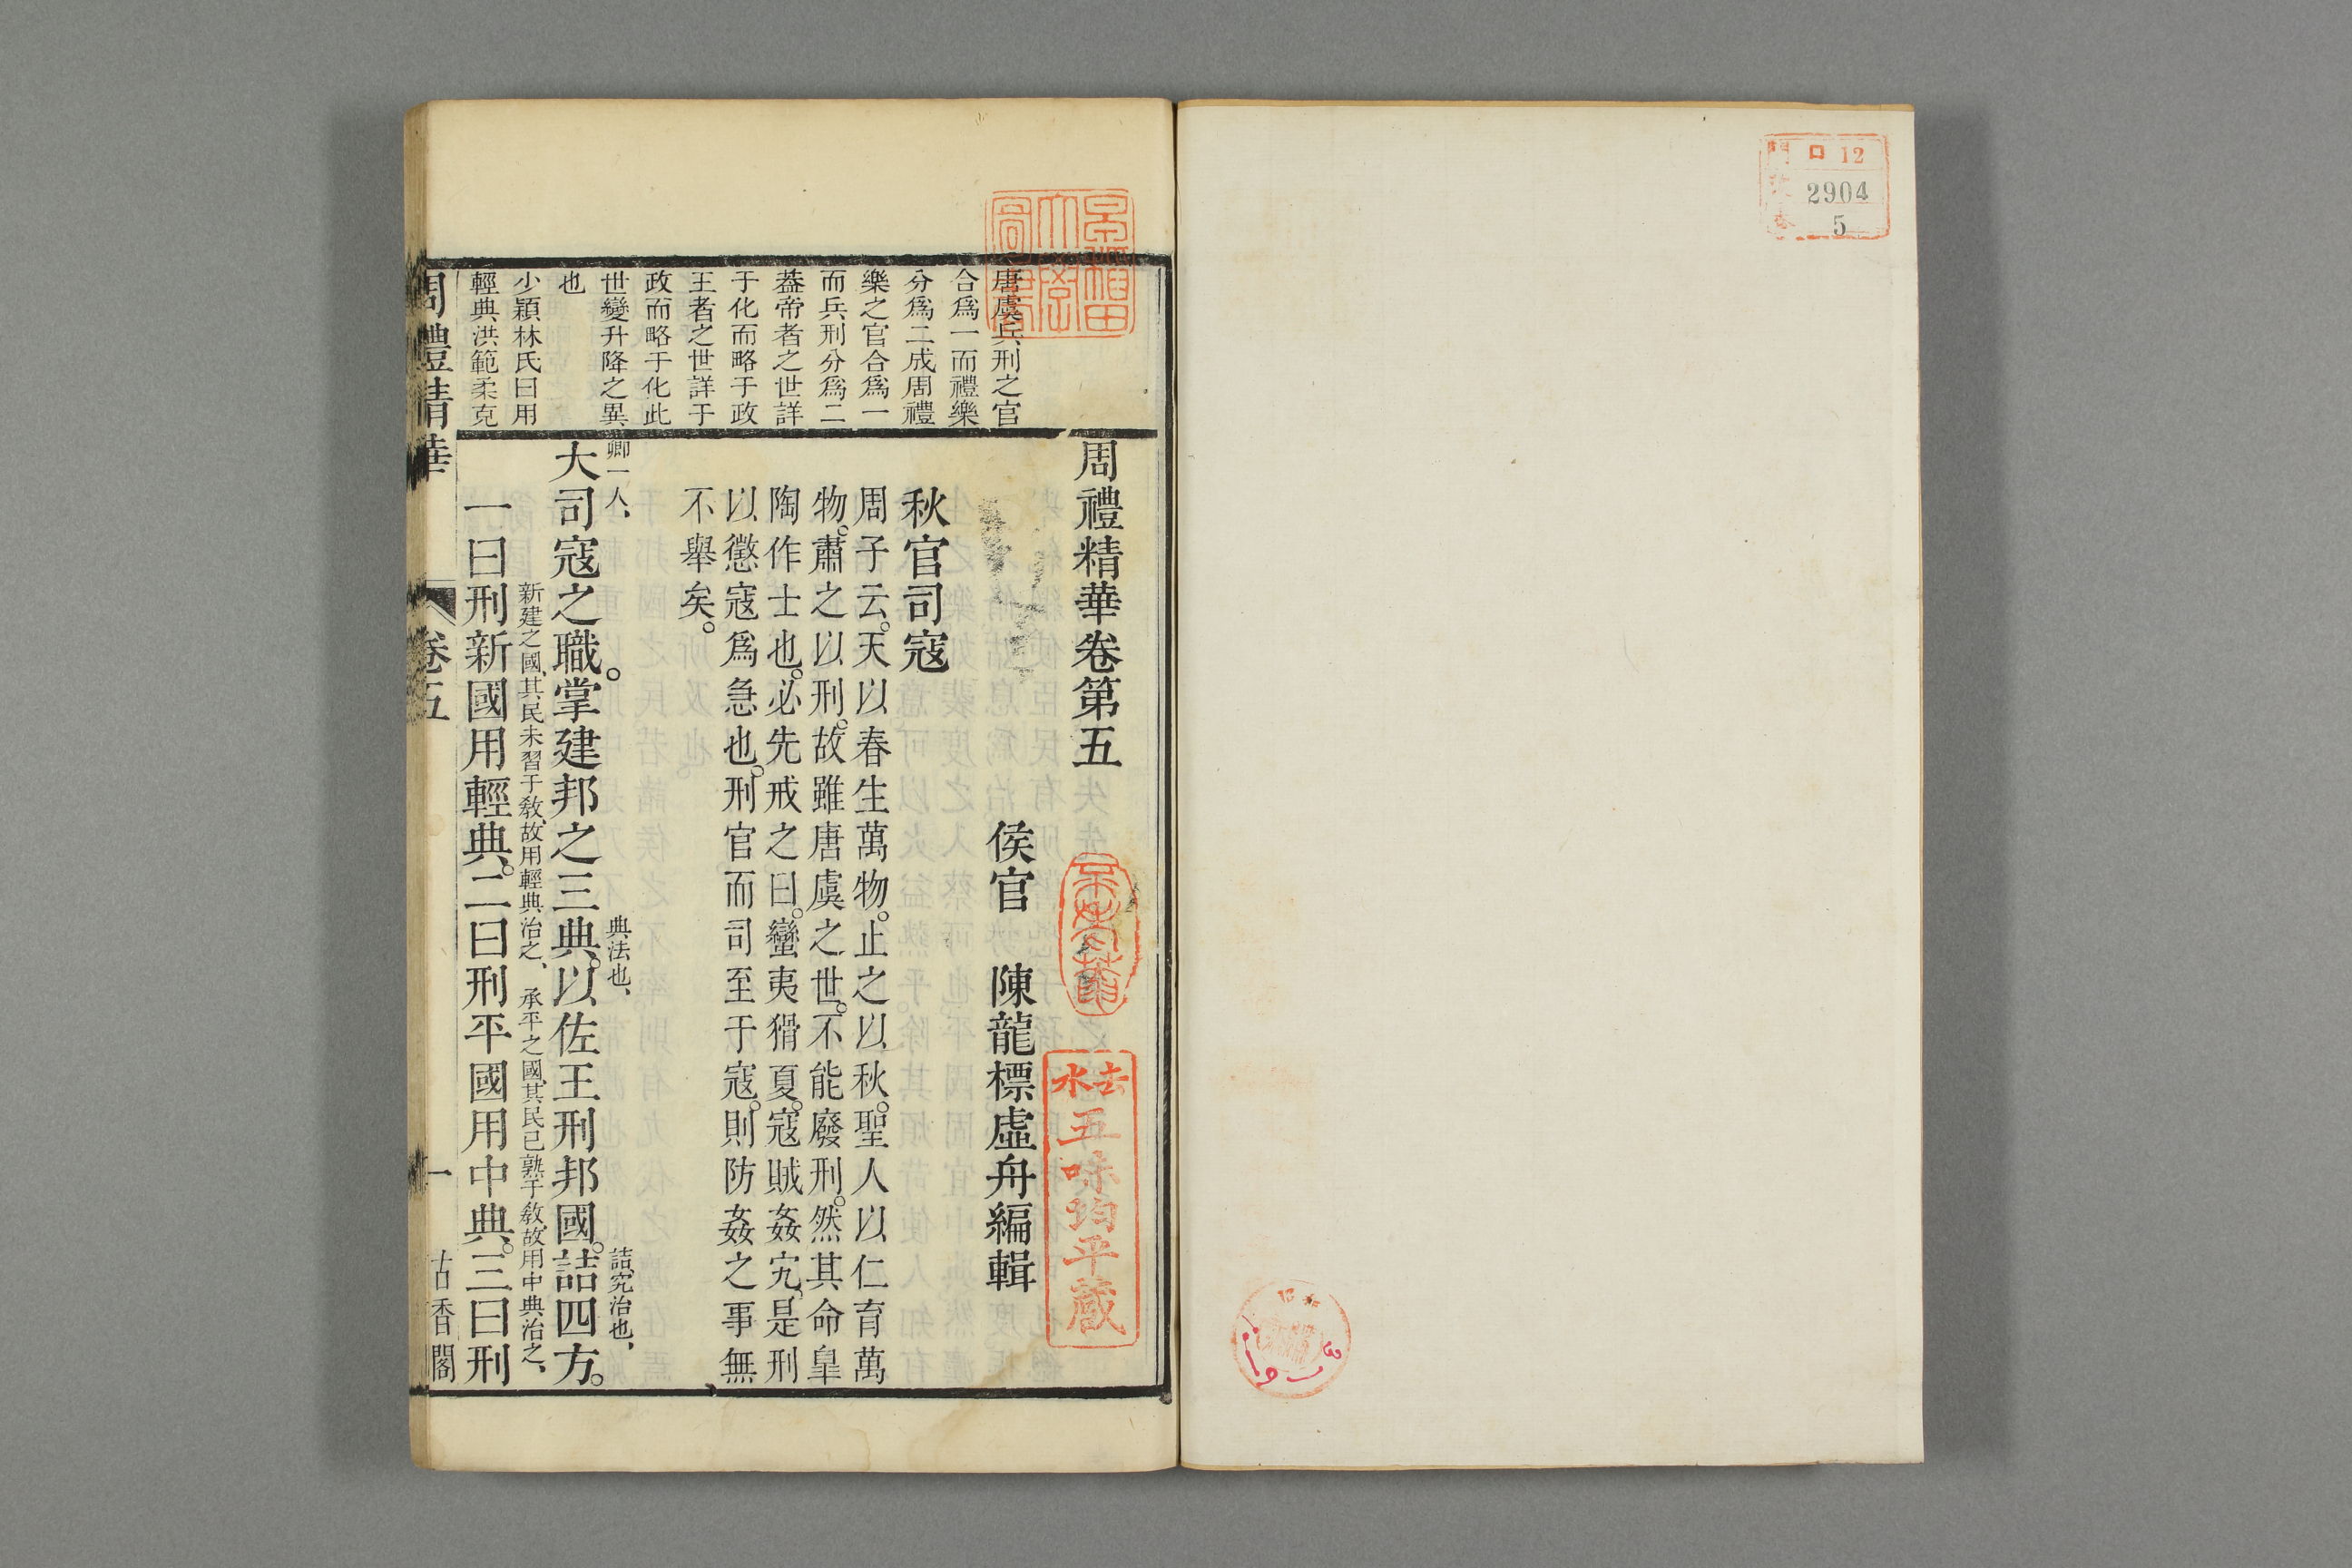 口 12
2904
5
周禮精華卷第五
侯官 陳龍標虛舟編輯
秋官司寇
周子云。天以春生萬物。止之以秋。聖人以仁育萬
物。肅之以刑。故雖唐虞之世。不能廢刑。然其命皐
陶作士也。必先戒之曰。蠻夷猾夏。寇賊姦宄。是刑
以懲寇爲急也。刑官而司至于寇。則防姦之事無
不舉矣。
唐虞兵刑之官
合爲一而禮樂
分爲二成周禮
樂之官合爲一
而兵刑分爲二
葢帝者之世詳
于化而略于政
王者之世詳于
政而略于化此
世變升降之異
也
少穎林氏曰用
輕典洪範柔克
卿一人、
典法也、
詰究治也、
大司寇之職。掌建邦之三典。以佐王刑邦國。詰四方。
新建之國、其民未習于敎、故用輕典治之、
承平之國、其民已熟于敎、故用中典治之、
一曰刑新國用輕典。二曰刑平國用中典。三曰刑
周禮精華
卷五
一
古香閣
五味均平蔵